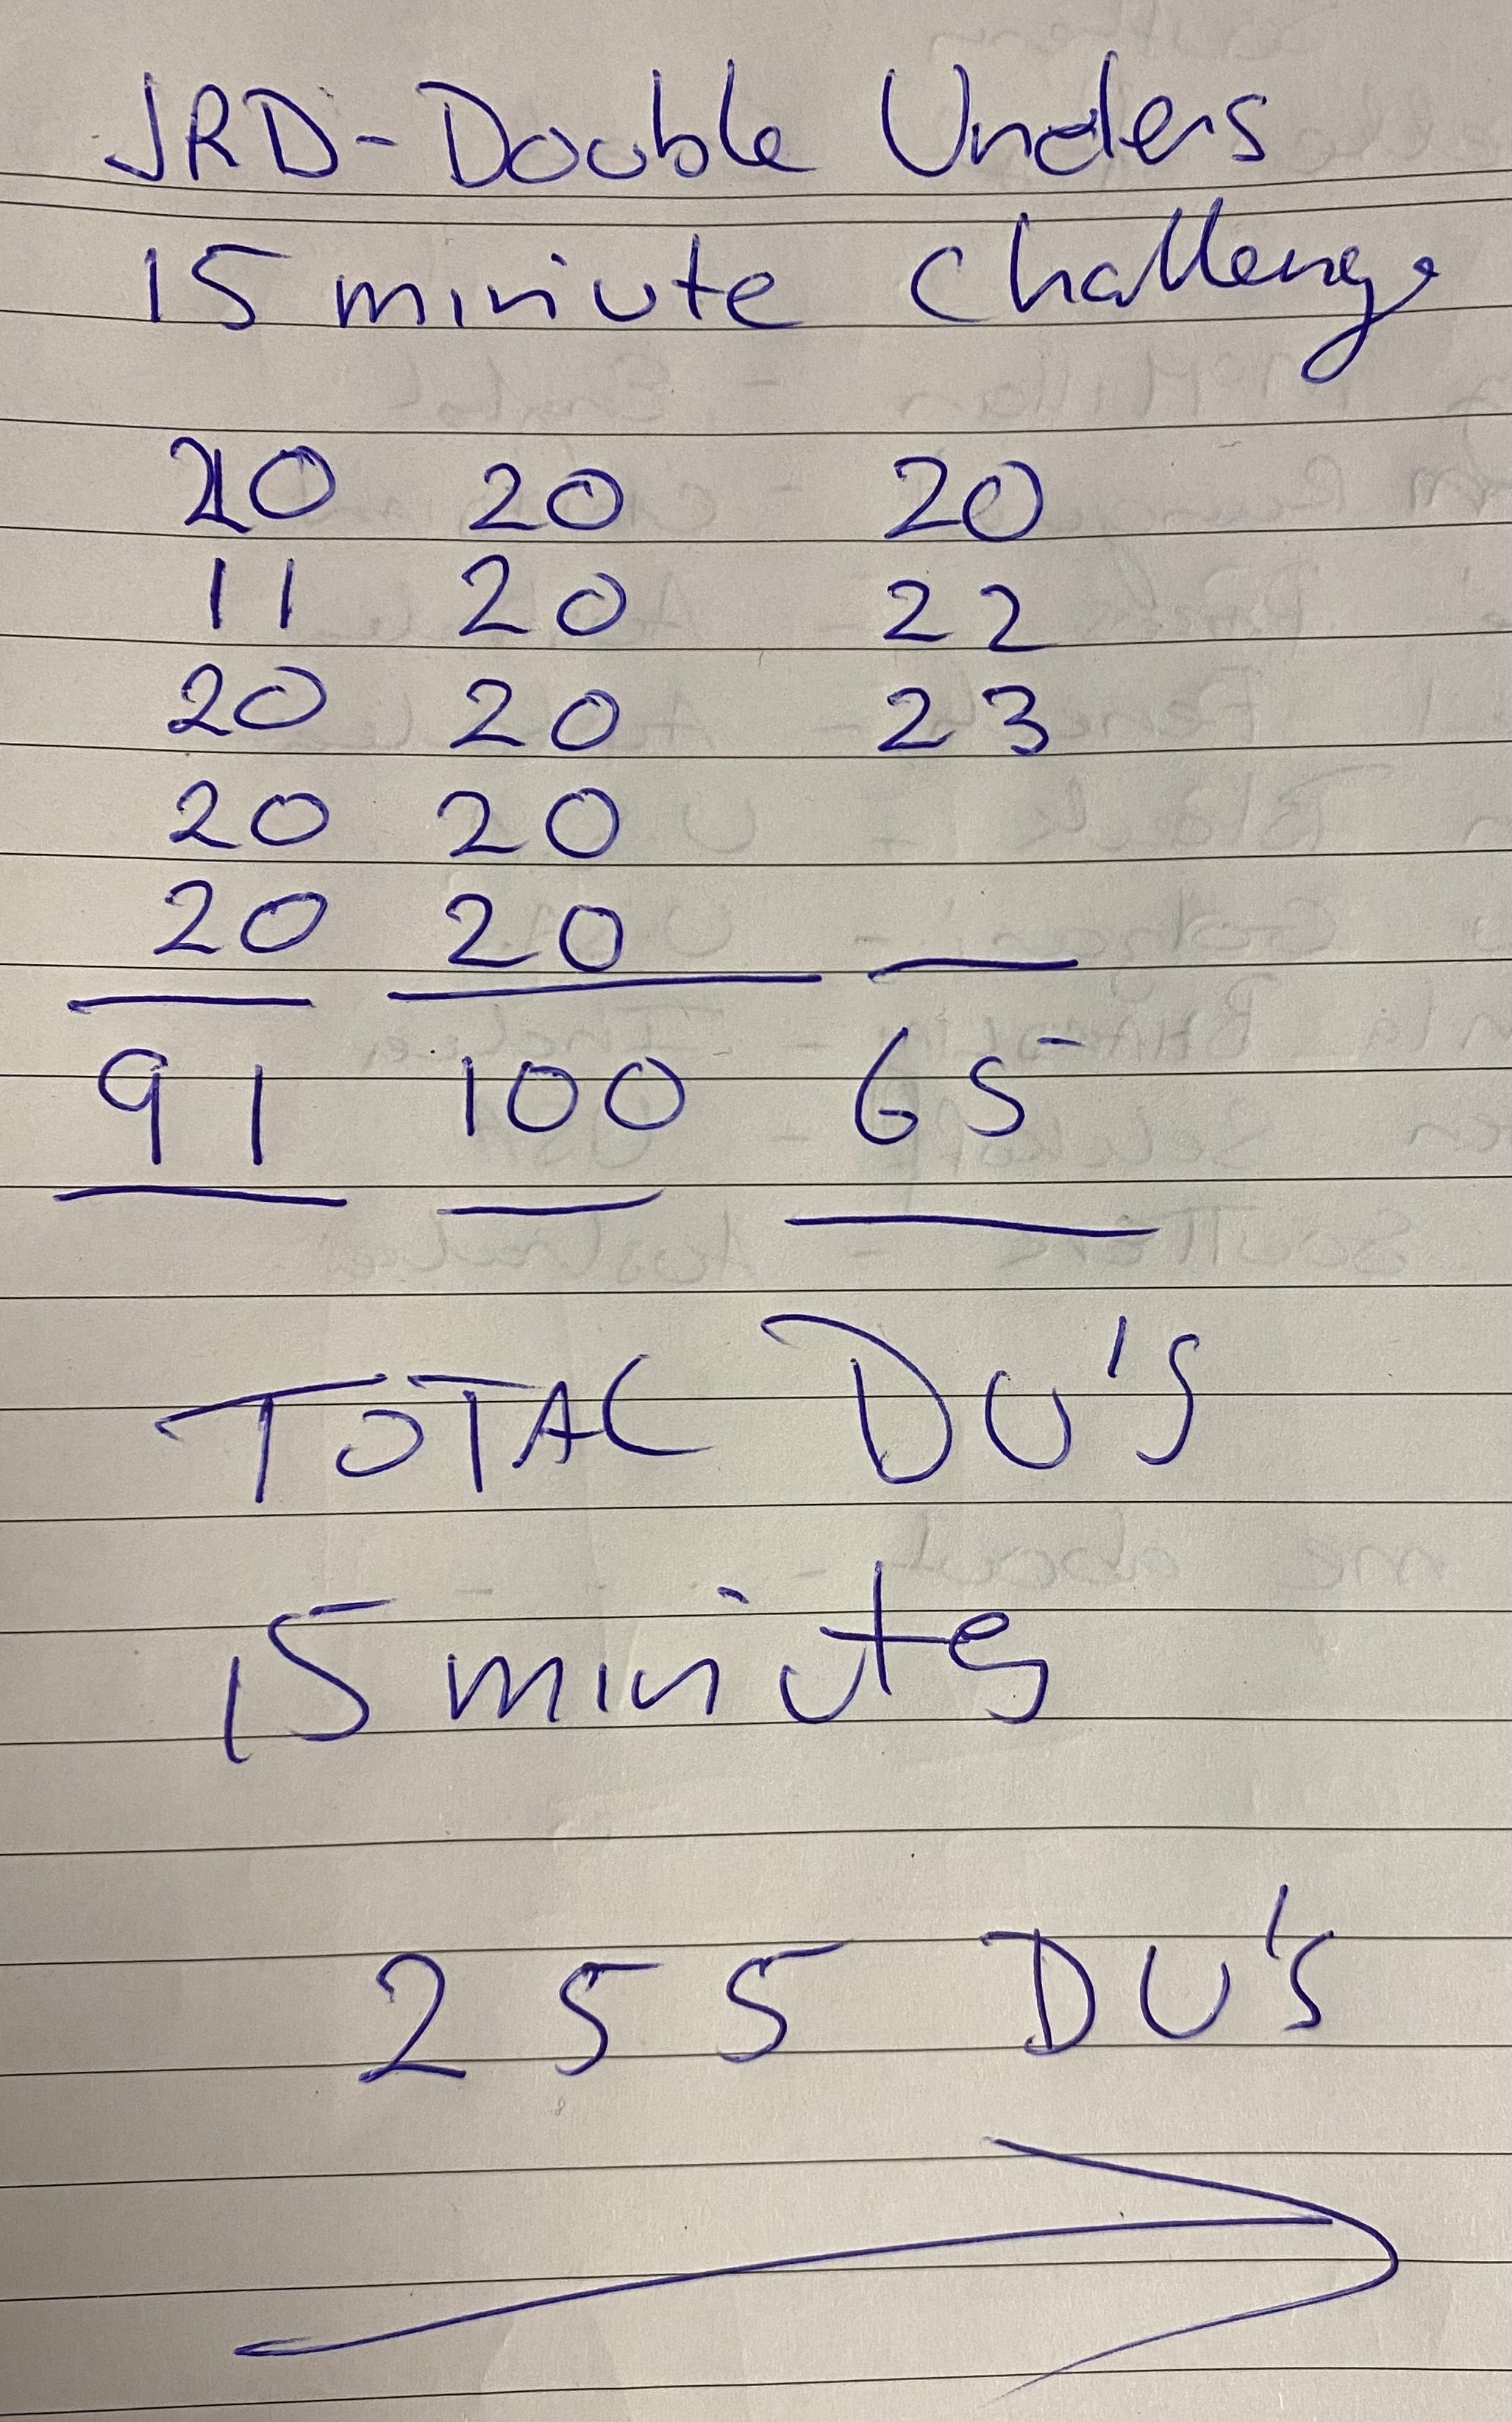 JRD - Double Unders
15 miniute challenge
20 20 20
11 20 22
20 20 23
20 20
20 20
91 100 65
TOTAL DU'S
15 minutes
255 DU's